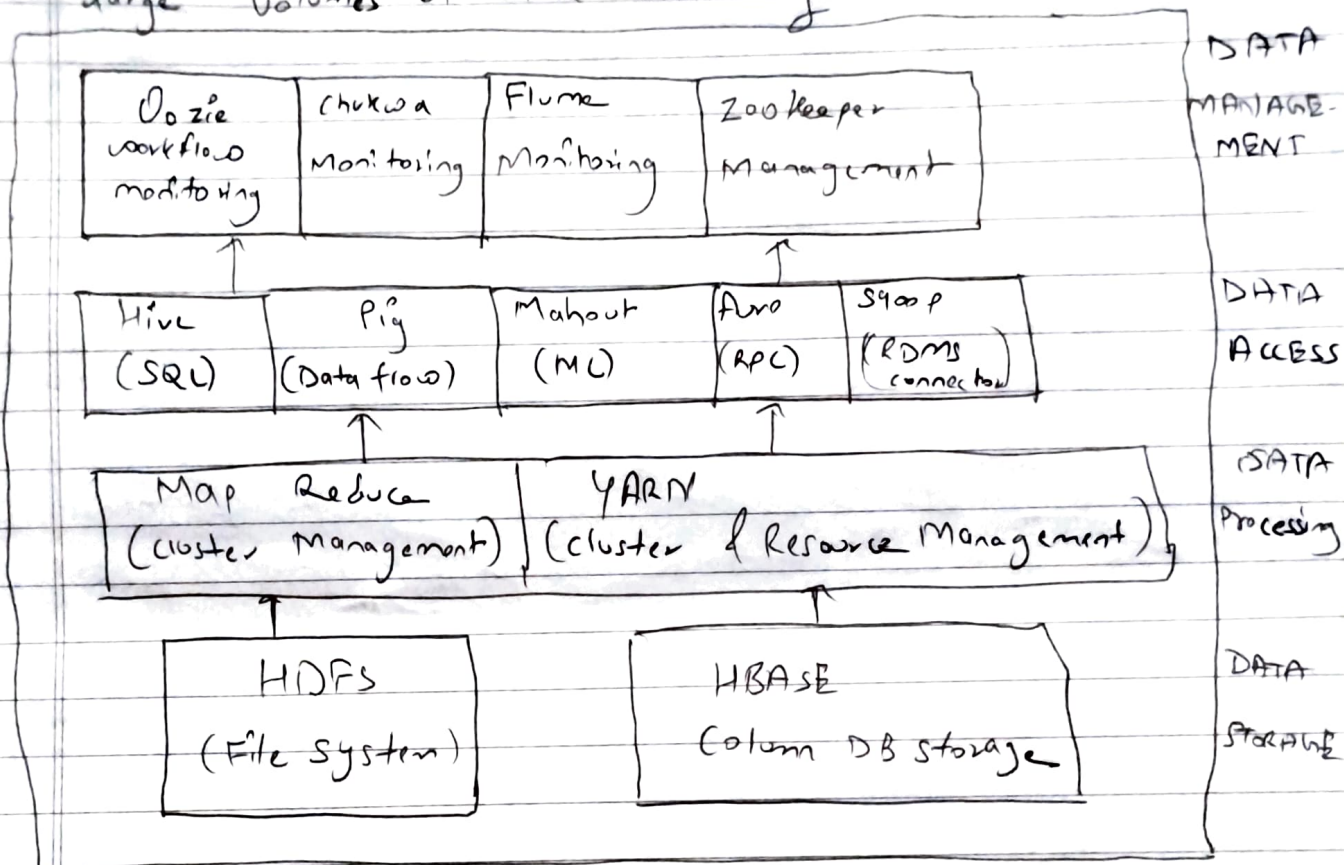 Large Volumes
DATA
MANAGE-
MENT
Oozie
workflow
monitoring
Chukwa
Monitoring
Flume
Monitoring
Zookeeper
Management
Hive
(SQL)
Pig
(Data flow)
Mahout
(ML)
Avro
(RPC)
Sqoop
(RDMS
connector)
DATA
ACCESS
Map Reduce
(Cluster Management)
YARN
(Cluster & Resource Management)
DATA
Processing
HDFS
(File System)
HBASE
Column DB Storage
DATA
STORAGE